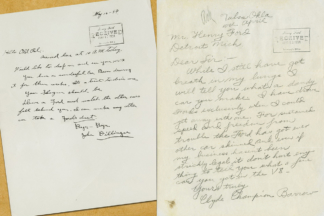 Hello Old Pal
Arrived here at 10 AM today
Would like to drop in and see you
You have a wonderful car. Been driving
it for three weeks. It's a treat to drive one
Your slogan should be
Drive a Ford and watch the other cars
fall behind you. I can make any other
car take a Ford's dust
Bye-Bye
John Dillinger
RECEIVED
Tulsa Okla
10th April
RECEIVED
Mr. Henry Ford
Detroit Mich.
Dear Sir:-
While I still have got
breath in my lungs I
will tell you what a dandy
car you make. I have drove
Fords exclusivly when I could
get away with one. For sustained
speed and freedom from
trouble the Ford has got ever
other car skinned and even if
my business hasen't been
strickly legal it don't hurt eny
thing to tell you what a fine
car you got in the V8
Yours truly
Clyde Champion Barrow